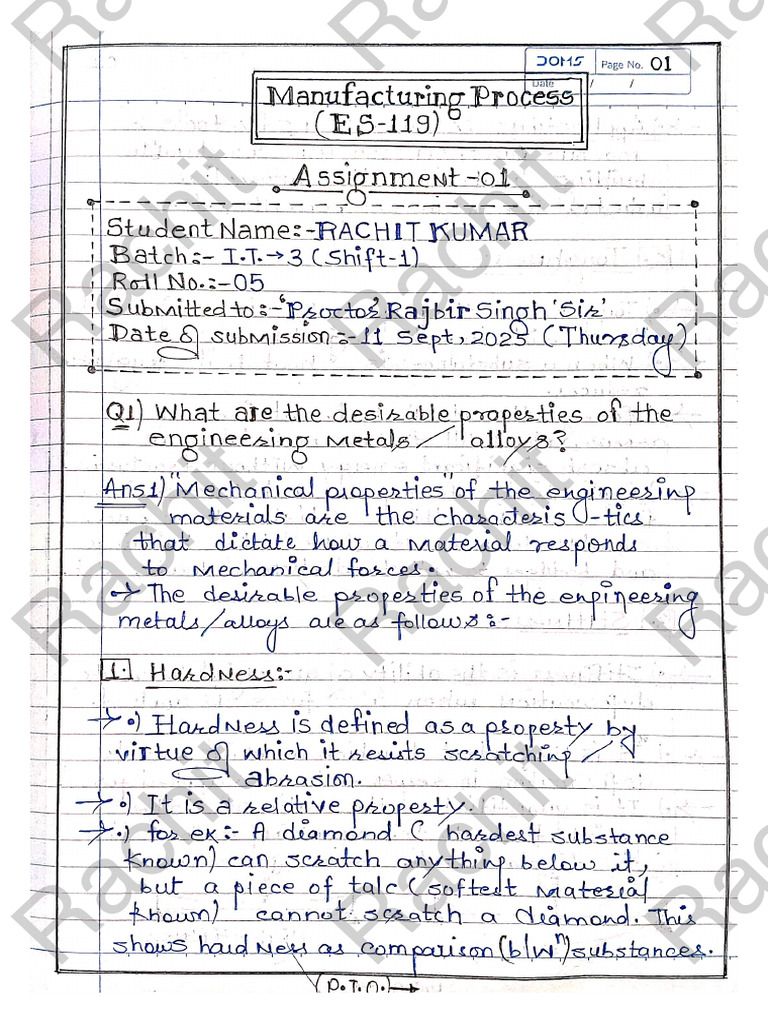 DOMS Page No. 01
Date / /
Manufacturing Process
(ES-119)
Assignment-01
Student Name:-RACHIT KUMAR
Batch:- I.T.→3 (Shift-1)
Roll No.:-05
Submitted to:-'Proctor' Rajbir Singh 'Sir'
Date of submission:-11 Sept, 2025 (Thursday)
Q1) What are the desirable properties of the
engineering Metals/alloys?
Ans1) "Mechanical properties" of the engineering
materials are the characteris-tics
that dictate how a Material responds
to Mechanical forces.
→ The desirable properties of the engineering
metals/alloys are as follows:-
1. HardNess:-
→ •) HardNess is defined as a property by
virtue of which it resists scratching/
abrasion.
→ •) It is a relative property.
→ •) for ex:- A diamond ( hardest substance
known) can scratch anything below it,
but a piece of talc (softest Material
known) cannot scratch a diamond. This
shows hardNess as comparison (b/wⁿ) substances.
(P.T.O.)→
Rachit
Rachit
Rachit
Rachit
Rachit
Rachit
Rachit
Rachit
Rachit
Rachit
Rachit
Rachit